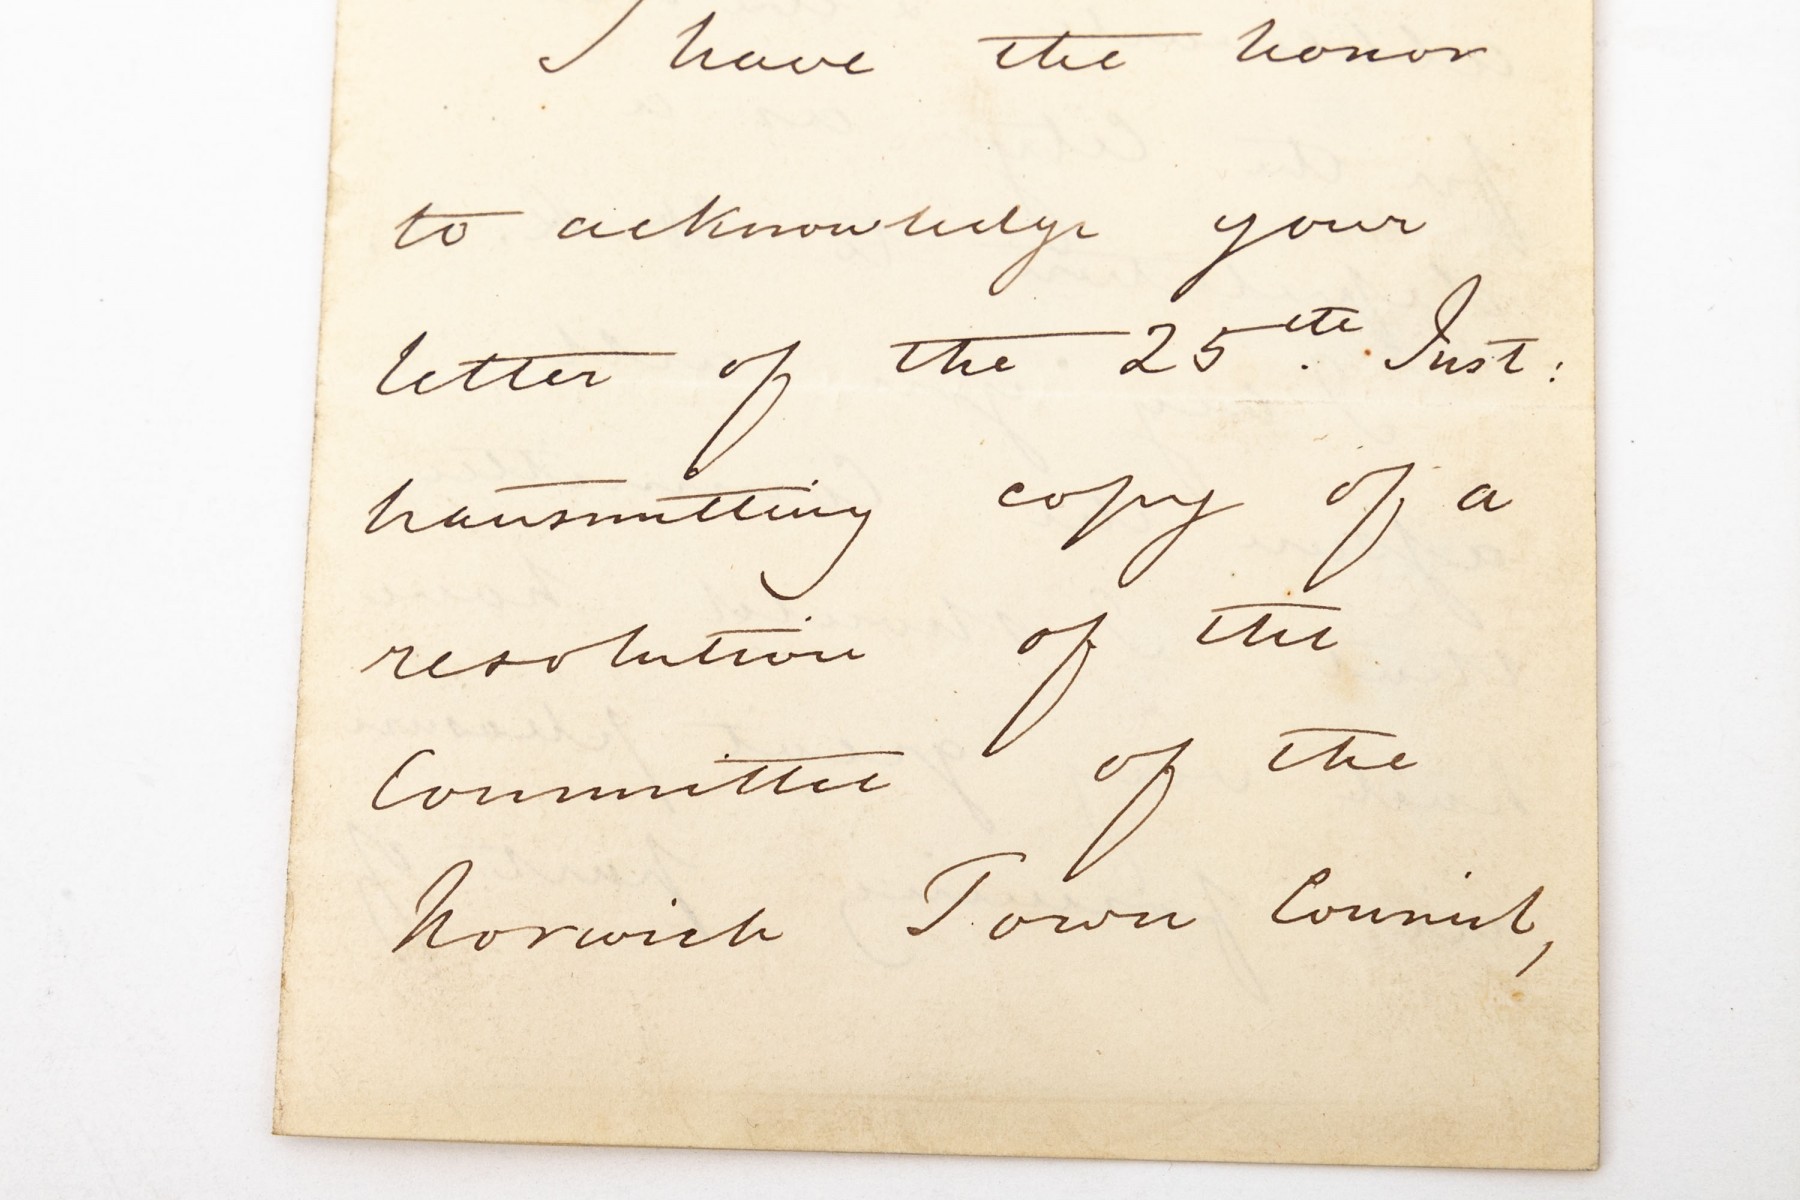 I have the honor
to acknowledge your
letter of the 25th. Inst:
transmitting copy of a
resolution of the
Committee of the
Norwich Town Council,